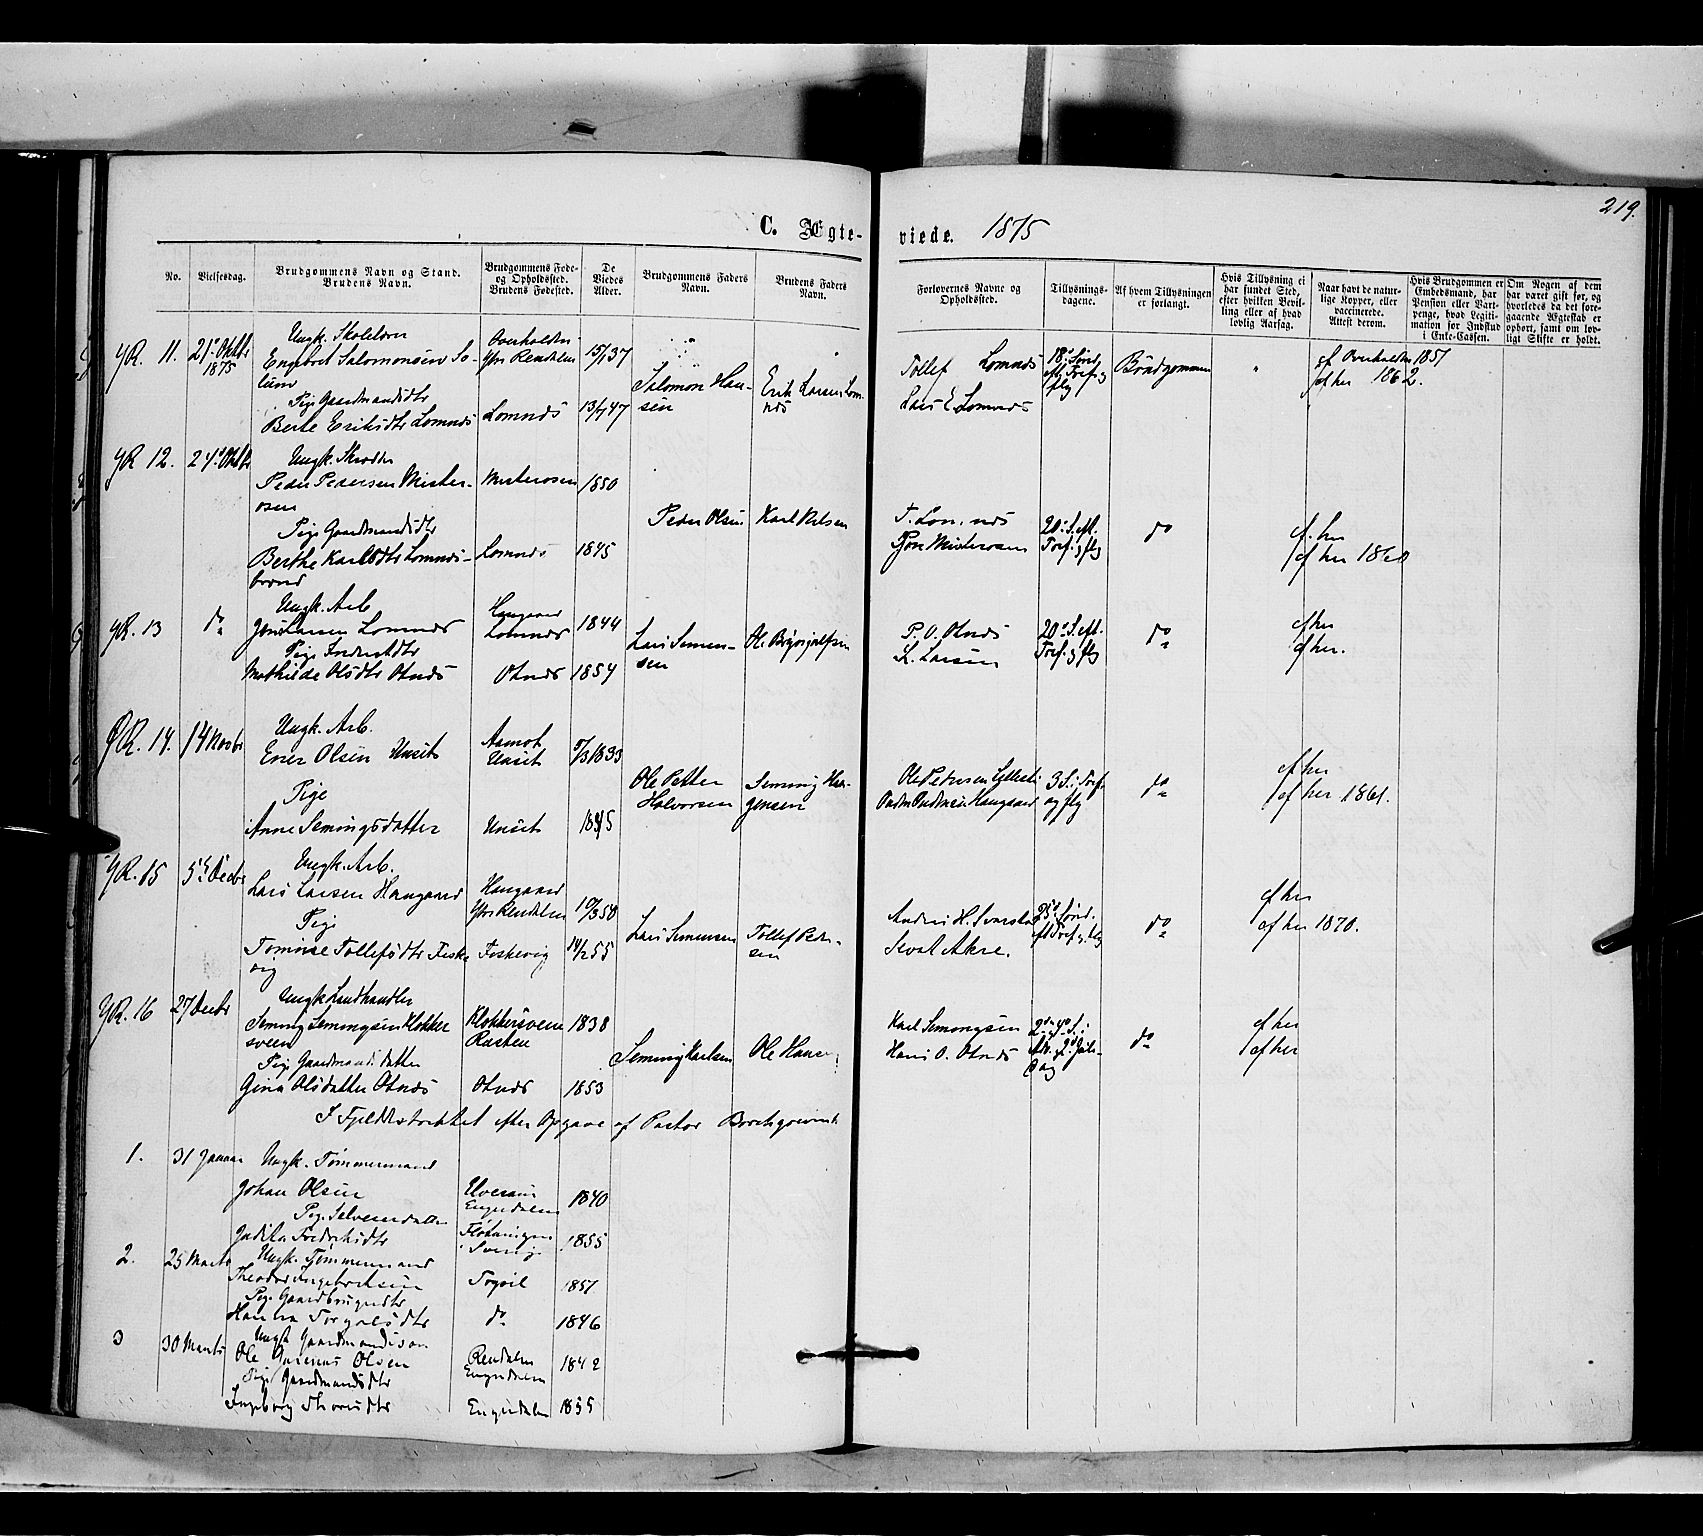 219.
C. Ægte-
viede. 1875
No.
Vielsesdag.
Brudgommens Navn og Stand.
Brudens Navn.
Brudgommens Føde-
og Opholdssted.
Brudens Fødested.
De
Viedes
Alder.
Brudgommens Faders
Navn.
Brudens Faders
Navn.
Forlovernes Navne og
Opholdssted.
Tillysnings-
dagene.
Af hvem Tillysningen
er forlangt.
Hvis Tillysning ei
har fundet Sted,
efter hvilken Bevil-
ling eller af hvad
lovlig Aarsag.
Naar havt de natur-
lige Kopper, eller
vaccinerede.
Attest derom.
Hvis Brudgommen er
Embedsmand, har
Pension eller Vart-
penge, hvad Legiti-
mation for Indskud
i Enke-Cassen.
Om Nogen af dem
har været gift før, og
hvorledes da det fore-
gaaende Ægteskab er
ophørt, samt om lov-
ligt Skifte er holdt.
YR. 11.
21de Oktbr
1875
Ungk. Skolelærer
Engebret Salomonsen So-
lum
Pige Gaardmandsdtr
Berte Eriksdtr Lomnæs
Overhalden
Ytre Rendalen
Lomnæs
15/1 37
13/1 47
Salomon Han-
sen
Erik Larsen Lom-
næs
Tollef Lomnæs
Lars E Lomnæs
18de Sønd.
eft. Tref. &
flg
Brudgommen
"
af Overhalden 1851
af her 1862.
YR 12.
24de Oktbr
Ungk. Skrædder
Peder Pedersen Mister-
osen
Pige Gaardmandsdtr
Berthe Karlsdtr Lomnæs-
Misterosen
Lomnæs
1850
1845
Peder Olsen
Karl Nilsen
T. Lomnæs
Misterosen
20de S. eft.
Tref. & flg
do
af her
af her 1860
YR. 13
do
Ungk. Arb
Jens Larsen Lomnæs
Pige Inderstdtr
Mathilde Olsdtr Otnæs
Haugaard
Lomnæs
Otnæs
1844
1854
Lars Simen-
sen
Ol. Brynjulfsen
P. O. Otnæs
L. Larsen
20de S. eft.
Tref. & flg
do
af her
af her.
ØR. 14.
14 Novbr
Ungk. Arb.
Ener Olsen Unset
Pige
Anne Semingsdatter
Aamot
Unset
Unset
/3 1833
1845
Ole Petter
Halvorsen
Seming Haa-
gensen
Ole Pedersen
Haugaard
3 S. i Tref.
og flg
do
af her
af her 1861.
YR. 15
5te Decbr
Ungk. Arb.
Lars Larsen Haugaard
Pige
Tomine Tollefsdtr Fiske-
vig
Haugaard
Ytre Rendalen
Fiskevig
10/3 50
14/2 55
Lars Simensen
Tollef Peder-
sen
Anders H.
Sival Akre.
25de Sønd.
eft Tref. & flg
do
af her
af her 1870.
YR. 16
27 Decbr
Ungk Landhandler
Seming Semingsen Klokker-
sveen
Pige Gaardmandsdatter
Gina Olsdatter Otnæs
Klokkersveen
Rasten
Otnæs
1838
1853
Seming Karlsen
Ole Hansen
Karl Semingsen
Hans O. Otnæs
2den & 4de S. i
Adv. & 2d Jule-
dag
do
af her
af her
I Fjelddistriktet efter Opgave af Pastor Borchgrevink
1.
31 Januar
Ungk. Tømmermand
Johan Olsen
Pige Selveierdatter
Judith Fredriksdtr
Elveraas
Engerdalen
Fløtningen
i Sverig
1840
1855
2.
25 Marts
Ungk. Tømmermand
Theodor Ingebrktsen
Pige Gaardbrugerdtr
Hanna Torgalsdtr
Trysil
do
1851
1846
3
30 Marts
Ungk Gaardmandssøn
Ole Olsen
Pige Gaardmandsdtr
Ingeborg Thoresdtr
Rendalen
Engerdalen
Engerdalen
1842
1855